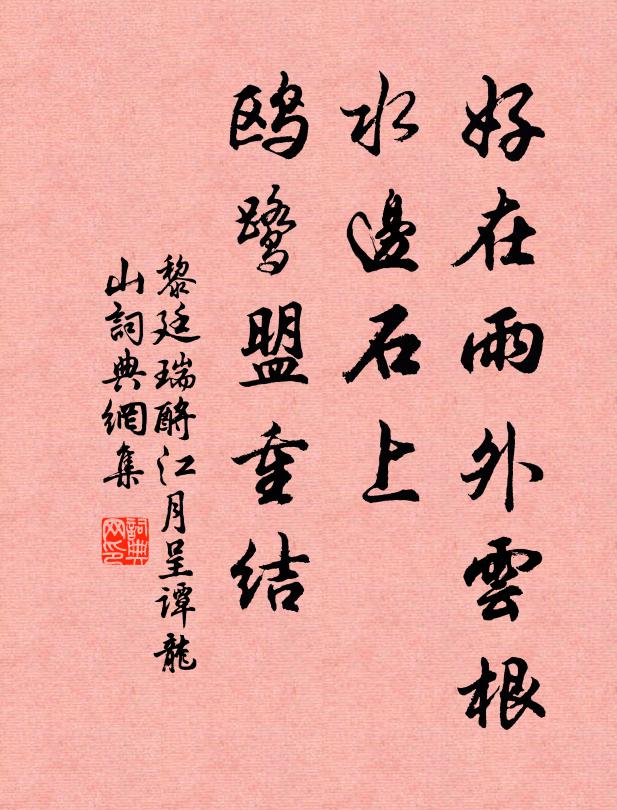 好在雨外雲根
水邊石上
鸥鷺盟重结
黎廷瑞酹江月呈谭龍
山詞典網集
詞典网印